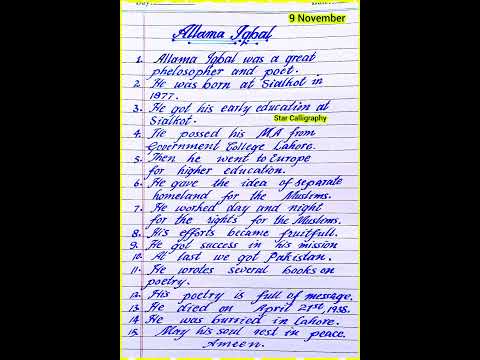 9 November
Allama Iqbal
1. Allama Iqbal was a great
phelosopher and poet.
2. He was born at Sialkot in
1877.
3. He got his early education at
Sialkot.
Star Calligraphy
4. He possed his MA from
Government College Lahore.
5. Then he went to Europe
for higher education.
6. He gave the idea of separate
homeland for the Muslims.
7. He worked day and night
for the rights for the Muslims.
8. His efforts became fruitfull.
9. He got success in his mission
10. At last we got Pakistan.
11. He wrotes several books on
poetry.
12. His poetry is full of message.
13. He died on April 21st, 1938.
14. He was burried in Lahore.
15. May his soul rest in peace.
Ameen.